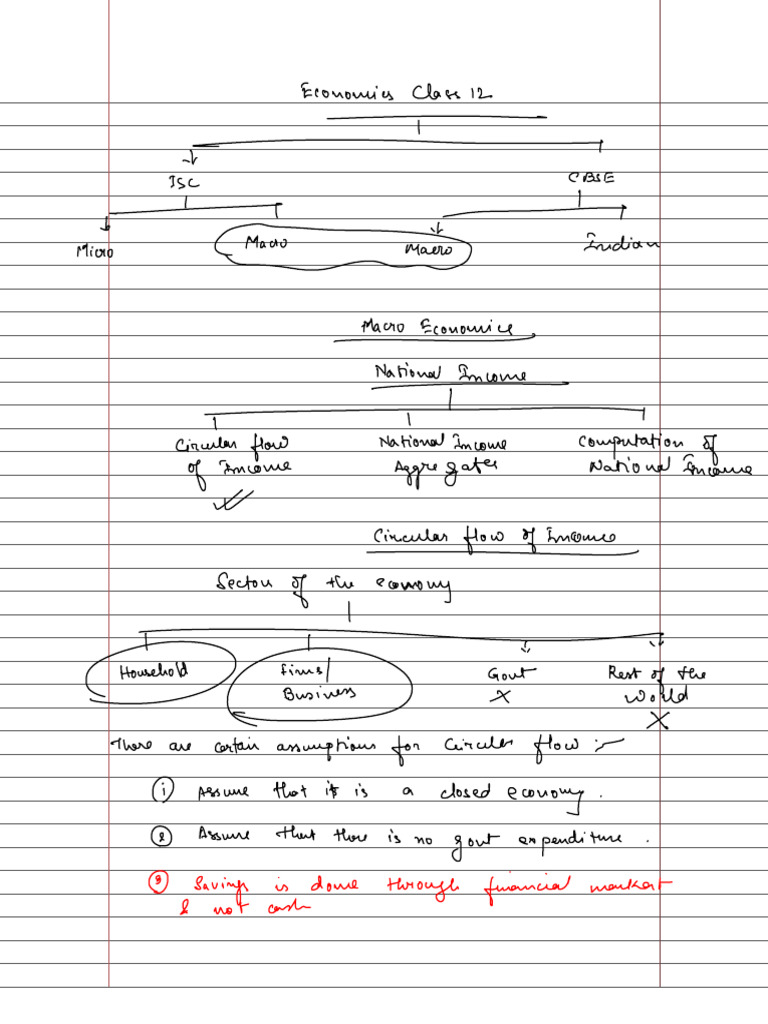 Economics Class 12
ISC CBSE
Micro Macro Macro Indian
Macro Economics
National Income
Circular flow National Income Computation of
of Income Aggregates National Income
Circular flow of Income
Sectors of the economy
Household firms/ Govt Rest of the
Business X World
X
There are certain assumptions for Circular flow :-
① Assume that it is a closed economy.
② Assume that there is no govt expenditure.
③ Saving is done through financial market
& not cash